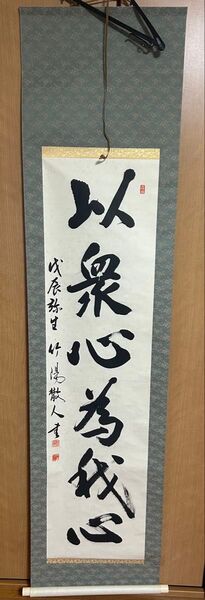 以衆心為我心
戊辰弥生 竹陽散人書